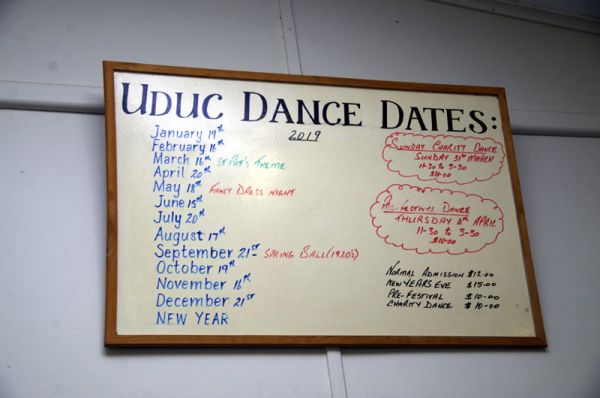 UDUC DANCE DATES:
2019
January 19th
February 16th
March 16th ST PAT'S THEME
April 20th
May 18th FANCY DRESS NIGHT
June 15th
July 20th
August 17th
September 21st SPRING BALL (1920's)
October 19th
November 16th
December 21st
NEW YEAR
SUNDAY CHARITY DANCE
SUNDAY 31st MARCH
11-30 to 3-30
$10.00
FESTIVAL DANCE
THURSDAY APRIL
11-30 to 3-30
$10.00
NORMAL ADMISSION $12-00
NEW YEARS EVE $15-00
PRE-FESTIVAL $10-00
CHARITY DANCE $10-00